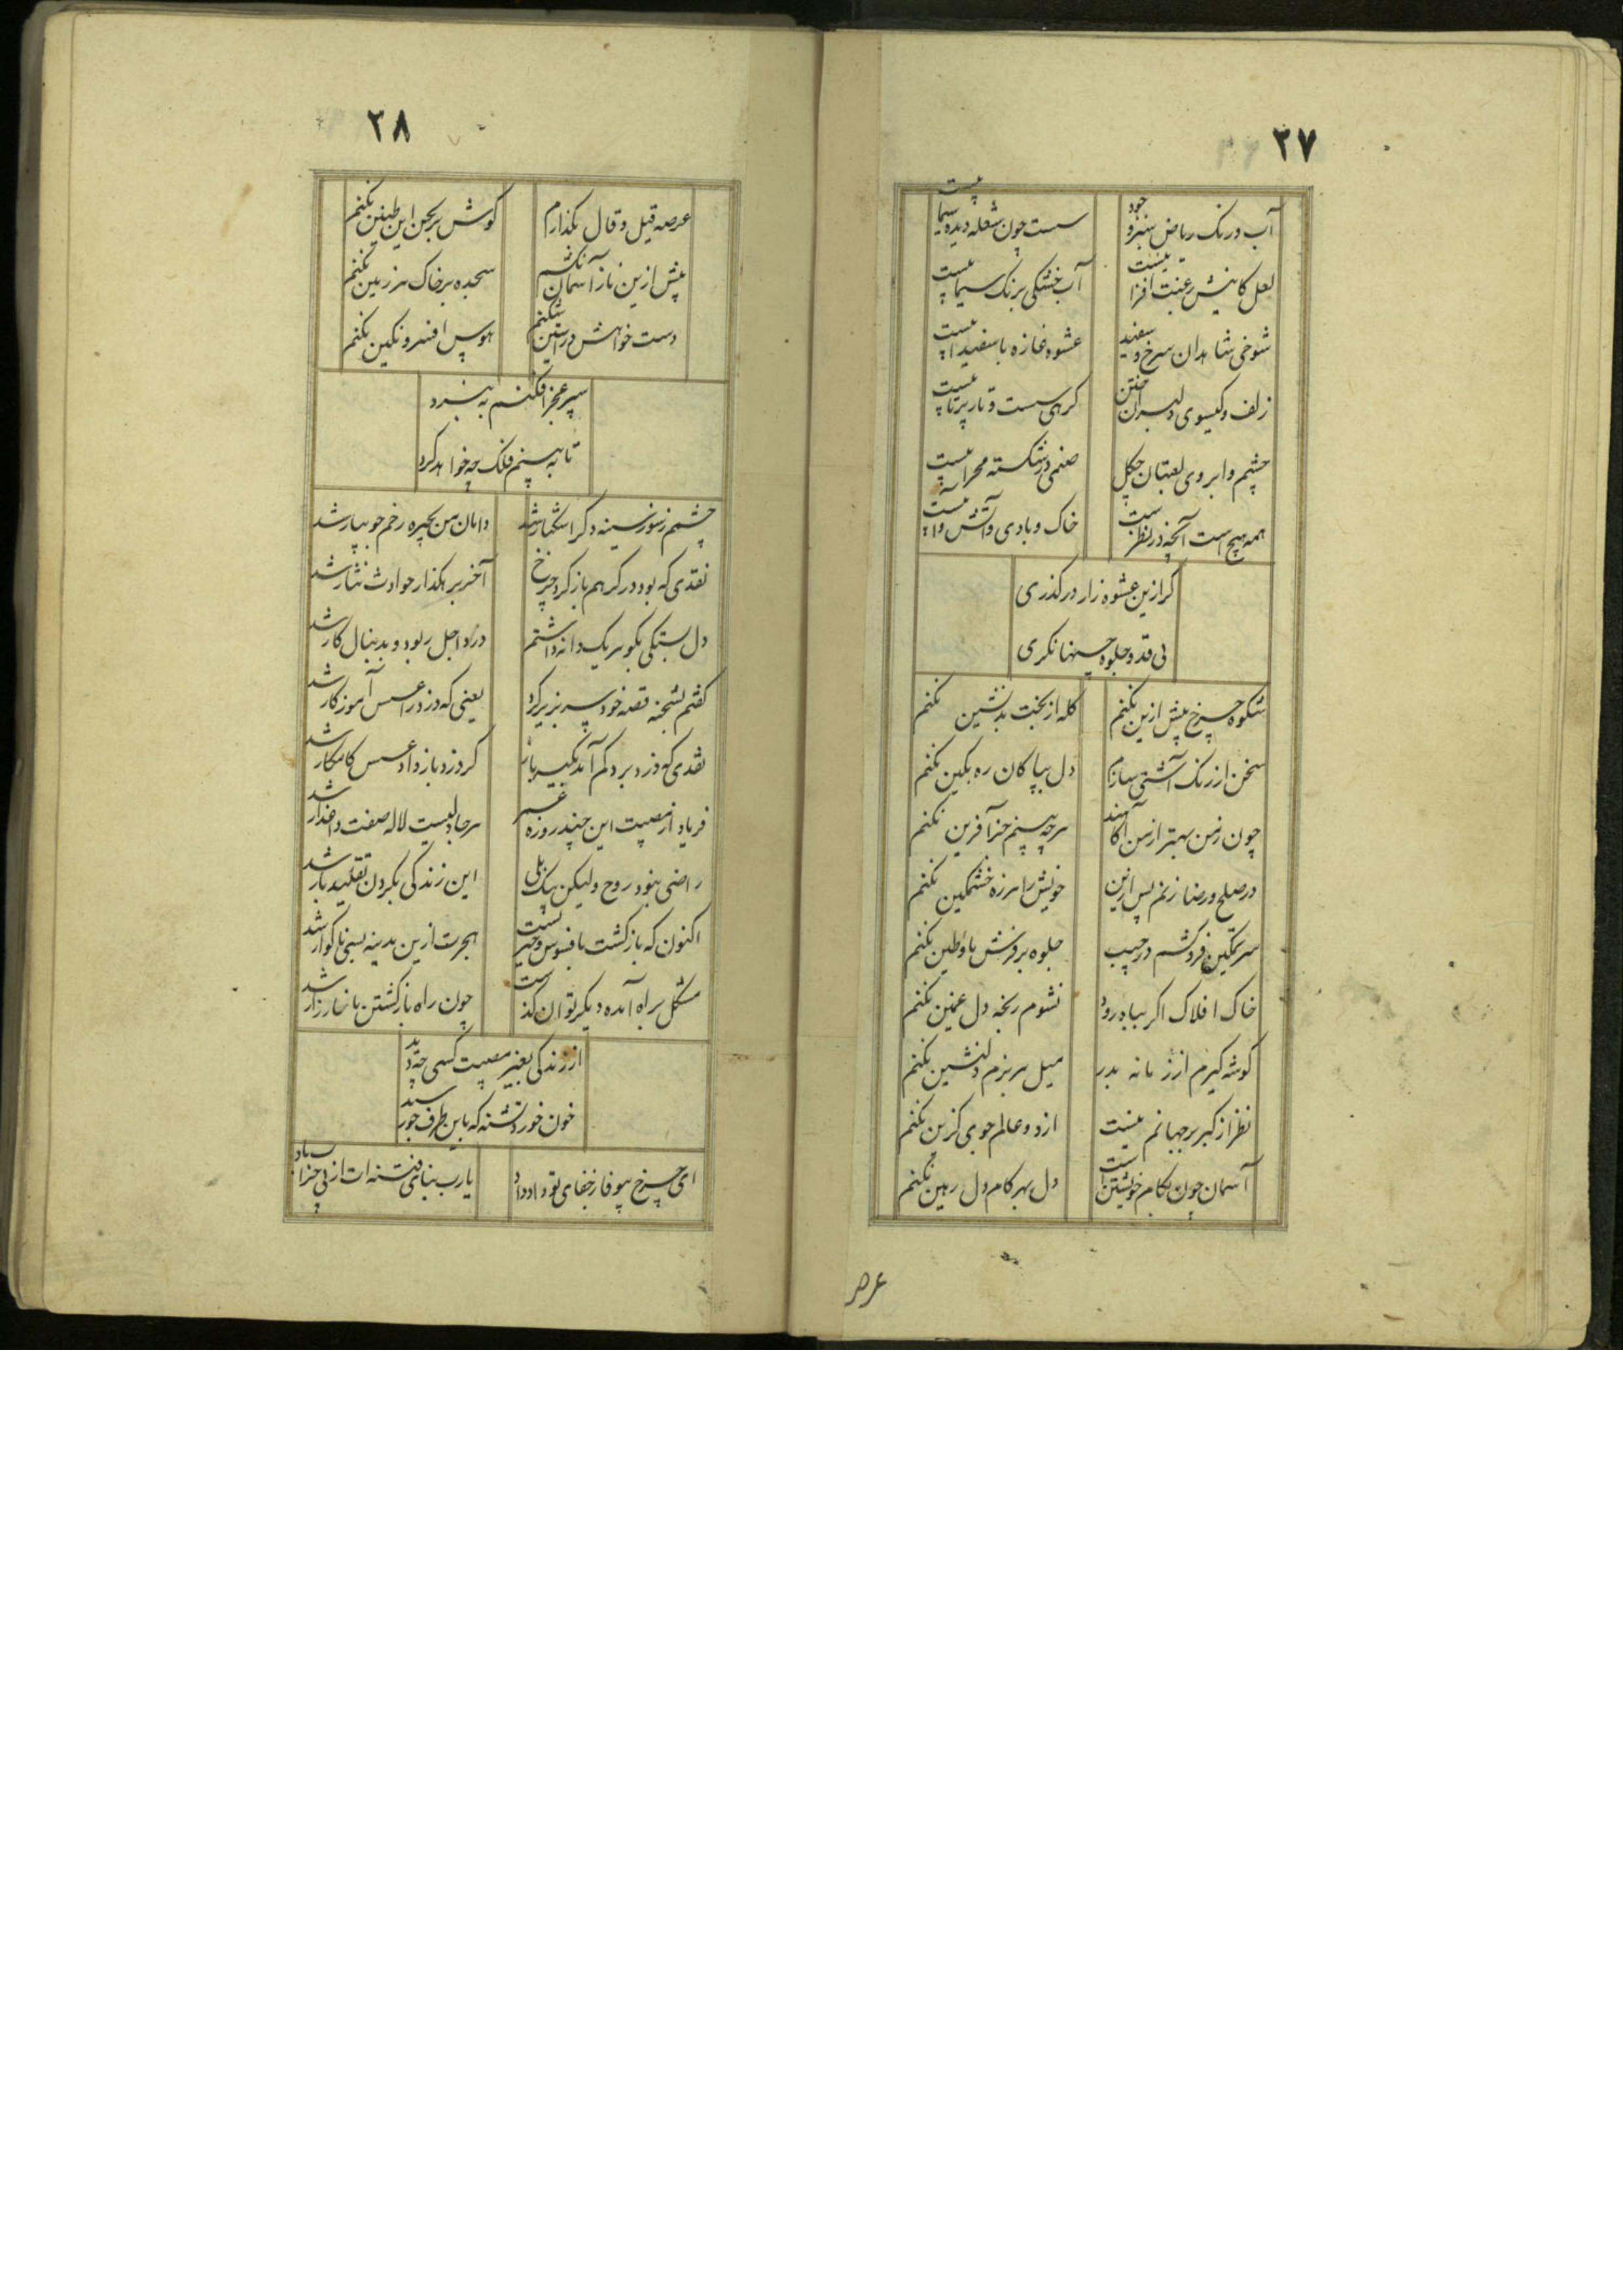 ۲۷
آب و رنک ریاض سبزه و خود
سست چون شعله دیده سیماییست
لعل کانیش رغبت افزا نیست
آب خشکی برنک سیماییست
شوخی شاهدان سرخ و سفید
عشوه غازه با سفیداییست
زلف و کیسوی دلبران ختن
کرهی سست و تار پرتاییست
چشم و ابروی لعبتان چکل
صنمی در شکسته محراییست
همه هیچ است آنچه در نظر است
خاک و بادی و آتش و آییست
کر ازین عشوه زار در کذری
بی قدو جلوه حسنها نکری
شکوه چرخ پیش ازین نکنم
کله از بخت بد نشین نکنم
سخن از رنک آشتی سازم
دل بپاکان ره بکین نکنم
چون ز من بهتر از من آکاهند
هرچه بینم جز آفرین نکنم
در صلح و رضا زنم پس ازین
خویش را هرزه خشمکین نکنم
سر تمکین فرو کشم در جیب
جلوه بر فرش ما و طین نکنم
خاک افلاک اکر بباد رود
نشوم رنجه دل غمین نکنم
کوشه کیرم از زمانه بدر
میل هر بزم دلنشین نکنم
نظر از کبر بر جهانم نیست
از دو عالم جوی کزین نکنم
آسمان چون بکام خویشتن است
دل بهر کام دل رهین نکنم
عرصه
۲۸
عرصه قیل و قال بکذارم
کوش بر لحن این طنین نکنم
پیش ازین ناز آسمان نکشم
سجده بر خاک هر زمین نکنم
دست خواهش در آستین شکنم
هوس افسر و نکین نکنم
سپر عجز افکنم به نبرد
تا به بینم فلک چه خواهد کرد
چشمم ز سوز سینه دکر اشکبار شد
دامان من بچهره زخم جویبار شد
نقدی که بود در کرهم باز کرد چرخ
آخر بر هکذار حوادث نثار شد
دل بستکی بکوهر یکدانه داشتم
دزد اجل ربود و بدنبال کار شد
کفتم بشحنه قصه خود سر بزیر کرد
یعنی که دزد را عسس آموزکار شد
نقدی که دزد برد کم آمد بکیسه باز
کر دزد باز داد عسس کامکار شد
فریاد از مصیبت این چند روزه عمر
هرجا دلیست لاله صفت داغدار شد
راضی نبود روح ولیکن بیک بلی
این زندکی بکردن تقلید بار شد
اکنون که بازکشت بافسوس و حسرتست
هجرت ازین مدینه بسی ناکوار شد
مشکل براه آمده دیکر توان کذشت
چون راه باز کشتن ما خارزار شد
از زندکی بغیر مصیبت کسی چه دید
خون خورد تشنه که باین طرف جو رسید
ای چرخ بیوفا ز جفای تو داد داد
یارب بنای فتنه ات از پی خراب باد